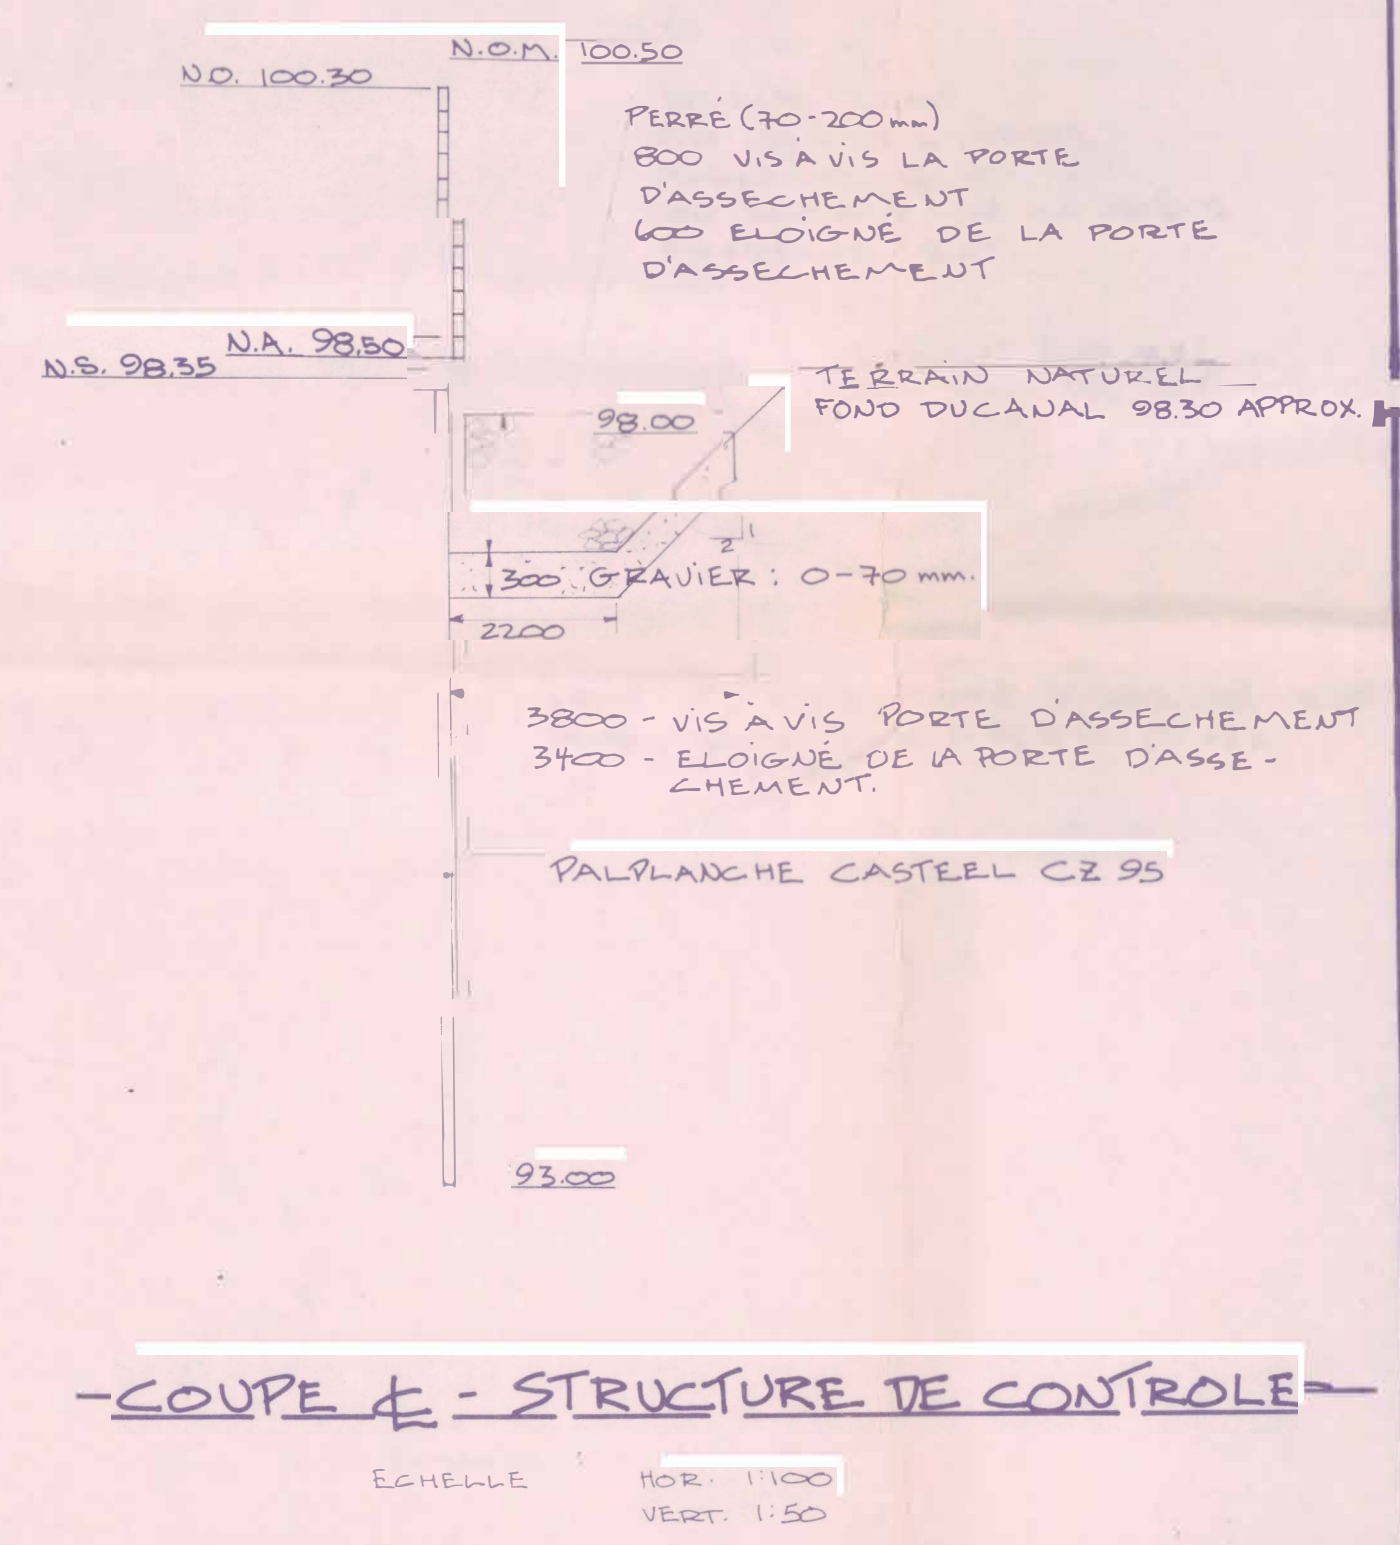 N.O.M. 100.50
N.O. 100.30
PERRÉ (70-200mm)
800 VIS À VIS LA PORTE
D'ASSECHEMENT
600 ELOIGNÉ DE LA PORTE
D'ASSECHEMENT
N.A. 98,50
N.S. 98,35
TERRAIN NATUREL
FOND DU CANAL 98.30 APPROX.
98.00
1
2
300 GRAVIER : 0-70 mm.
2200
3800 - VIS À VIS PORTE D'ASSECHEMENT
3400 - ELOIGNÉ DE LA PORTE D'ASSE-
CHEMENT.
PALPLANCHE CASTEEL CZ 95
93.00
-COUPE ℄ - STRUCTURE DE CONTROLE-
ECHELLE HOR. 1:100
VERT. 1:50